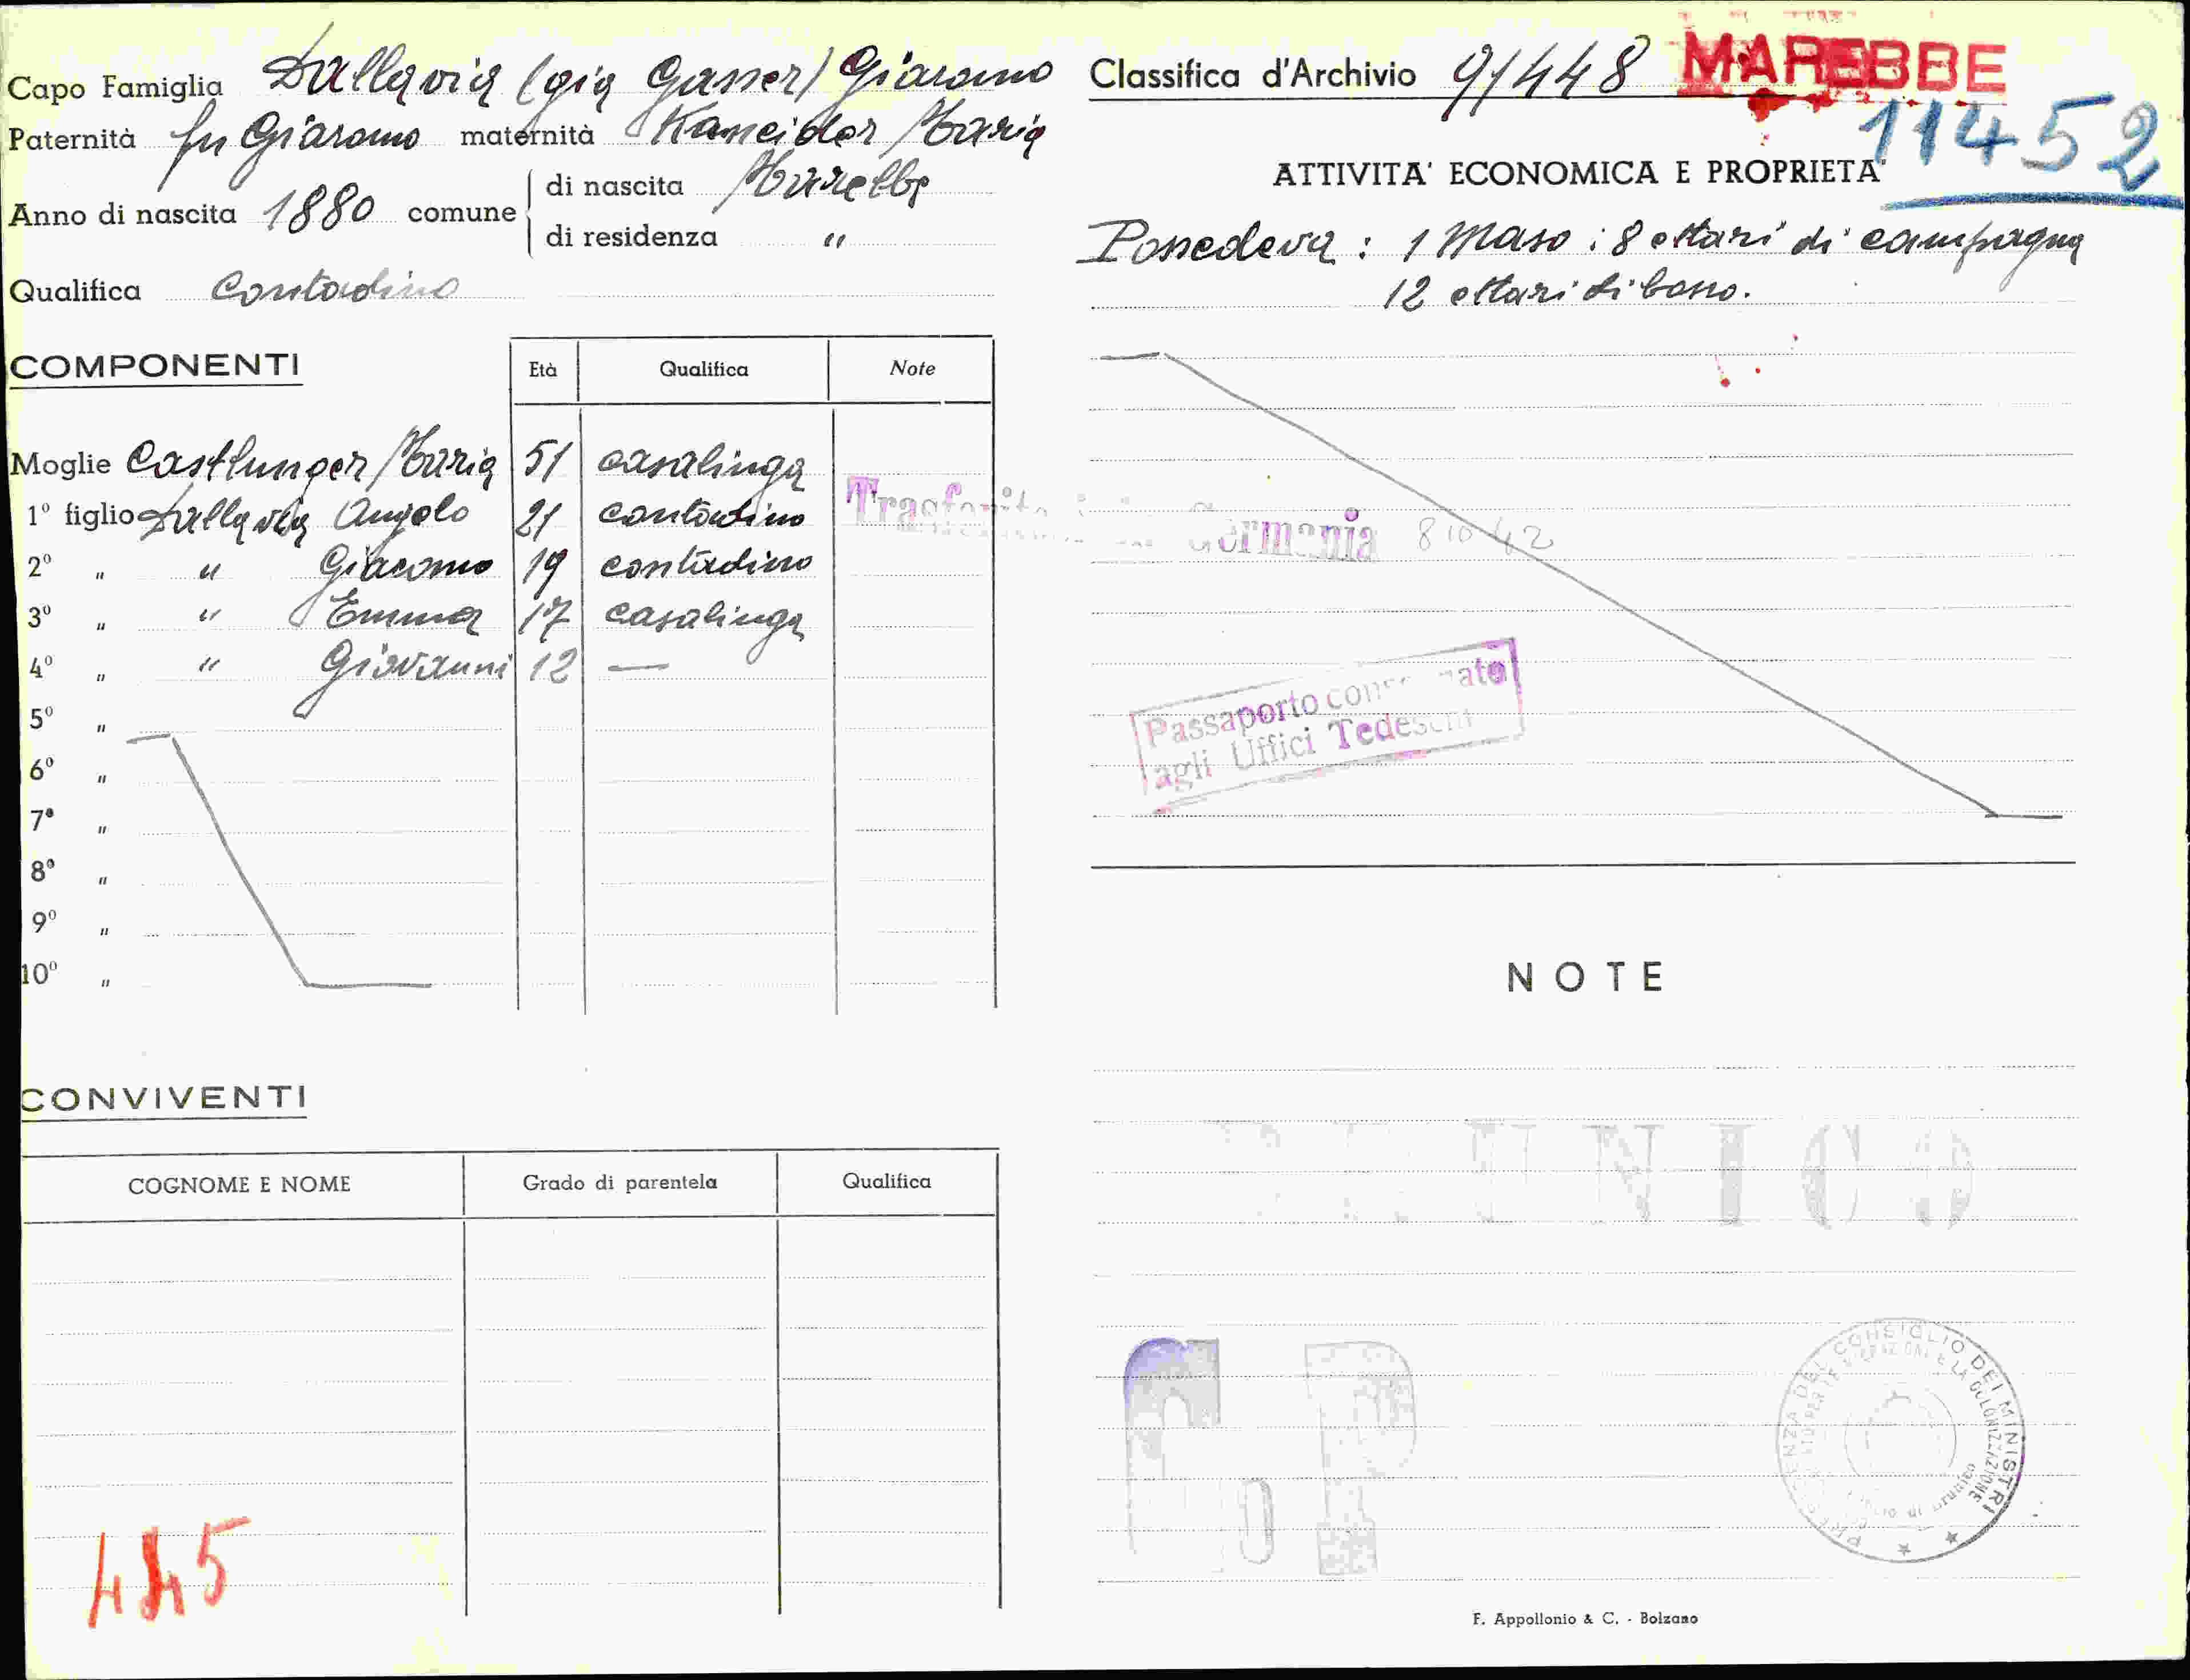 Capo Famiglia Dallavia (già Gasser) Giacomo
Paternità fu Giacomo maternità Kaneider Maria
Anno di nascita 1880 comune di nascita Marebbe
di residenza "
Qualifica Contadino
COMPONENTI Età Qualifica Note
Moglie Castlunger Maria 51 casalinga
1° figlio Dallavia Angelo 21 contadino
2° " " Giacomo 19 contadino
3° " " Emma 17 casalinga
4° " " Giovanni 12 —
5° "
6° "
7° "
8° "
9° "
10° "
CONVIVENTI
COGNOME E NOME Grado di parentela Qualifica
445
Classifica d'Archivio 9/448 MAREBBE
11452
ATTIVITA' ECONOMICA E PROPRIETA'
Possedeva: 1 Maso: 8 ettari di campagna
12 ettari di bosco.
Trasferito in Germania 8 10 42
Passaporto consegnato
agli Uffici Tedeschi
NOTE
BRUNICO
PRESIDENZA DEL CONSIGLIO DEI MINISTRI
F. Appollonio & C. - Bolzano